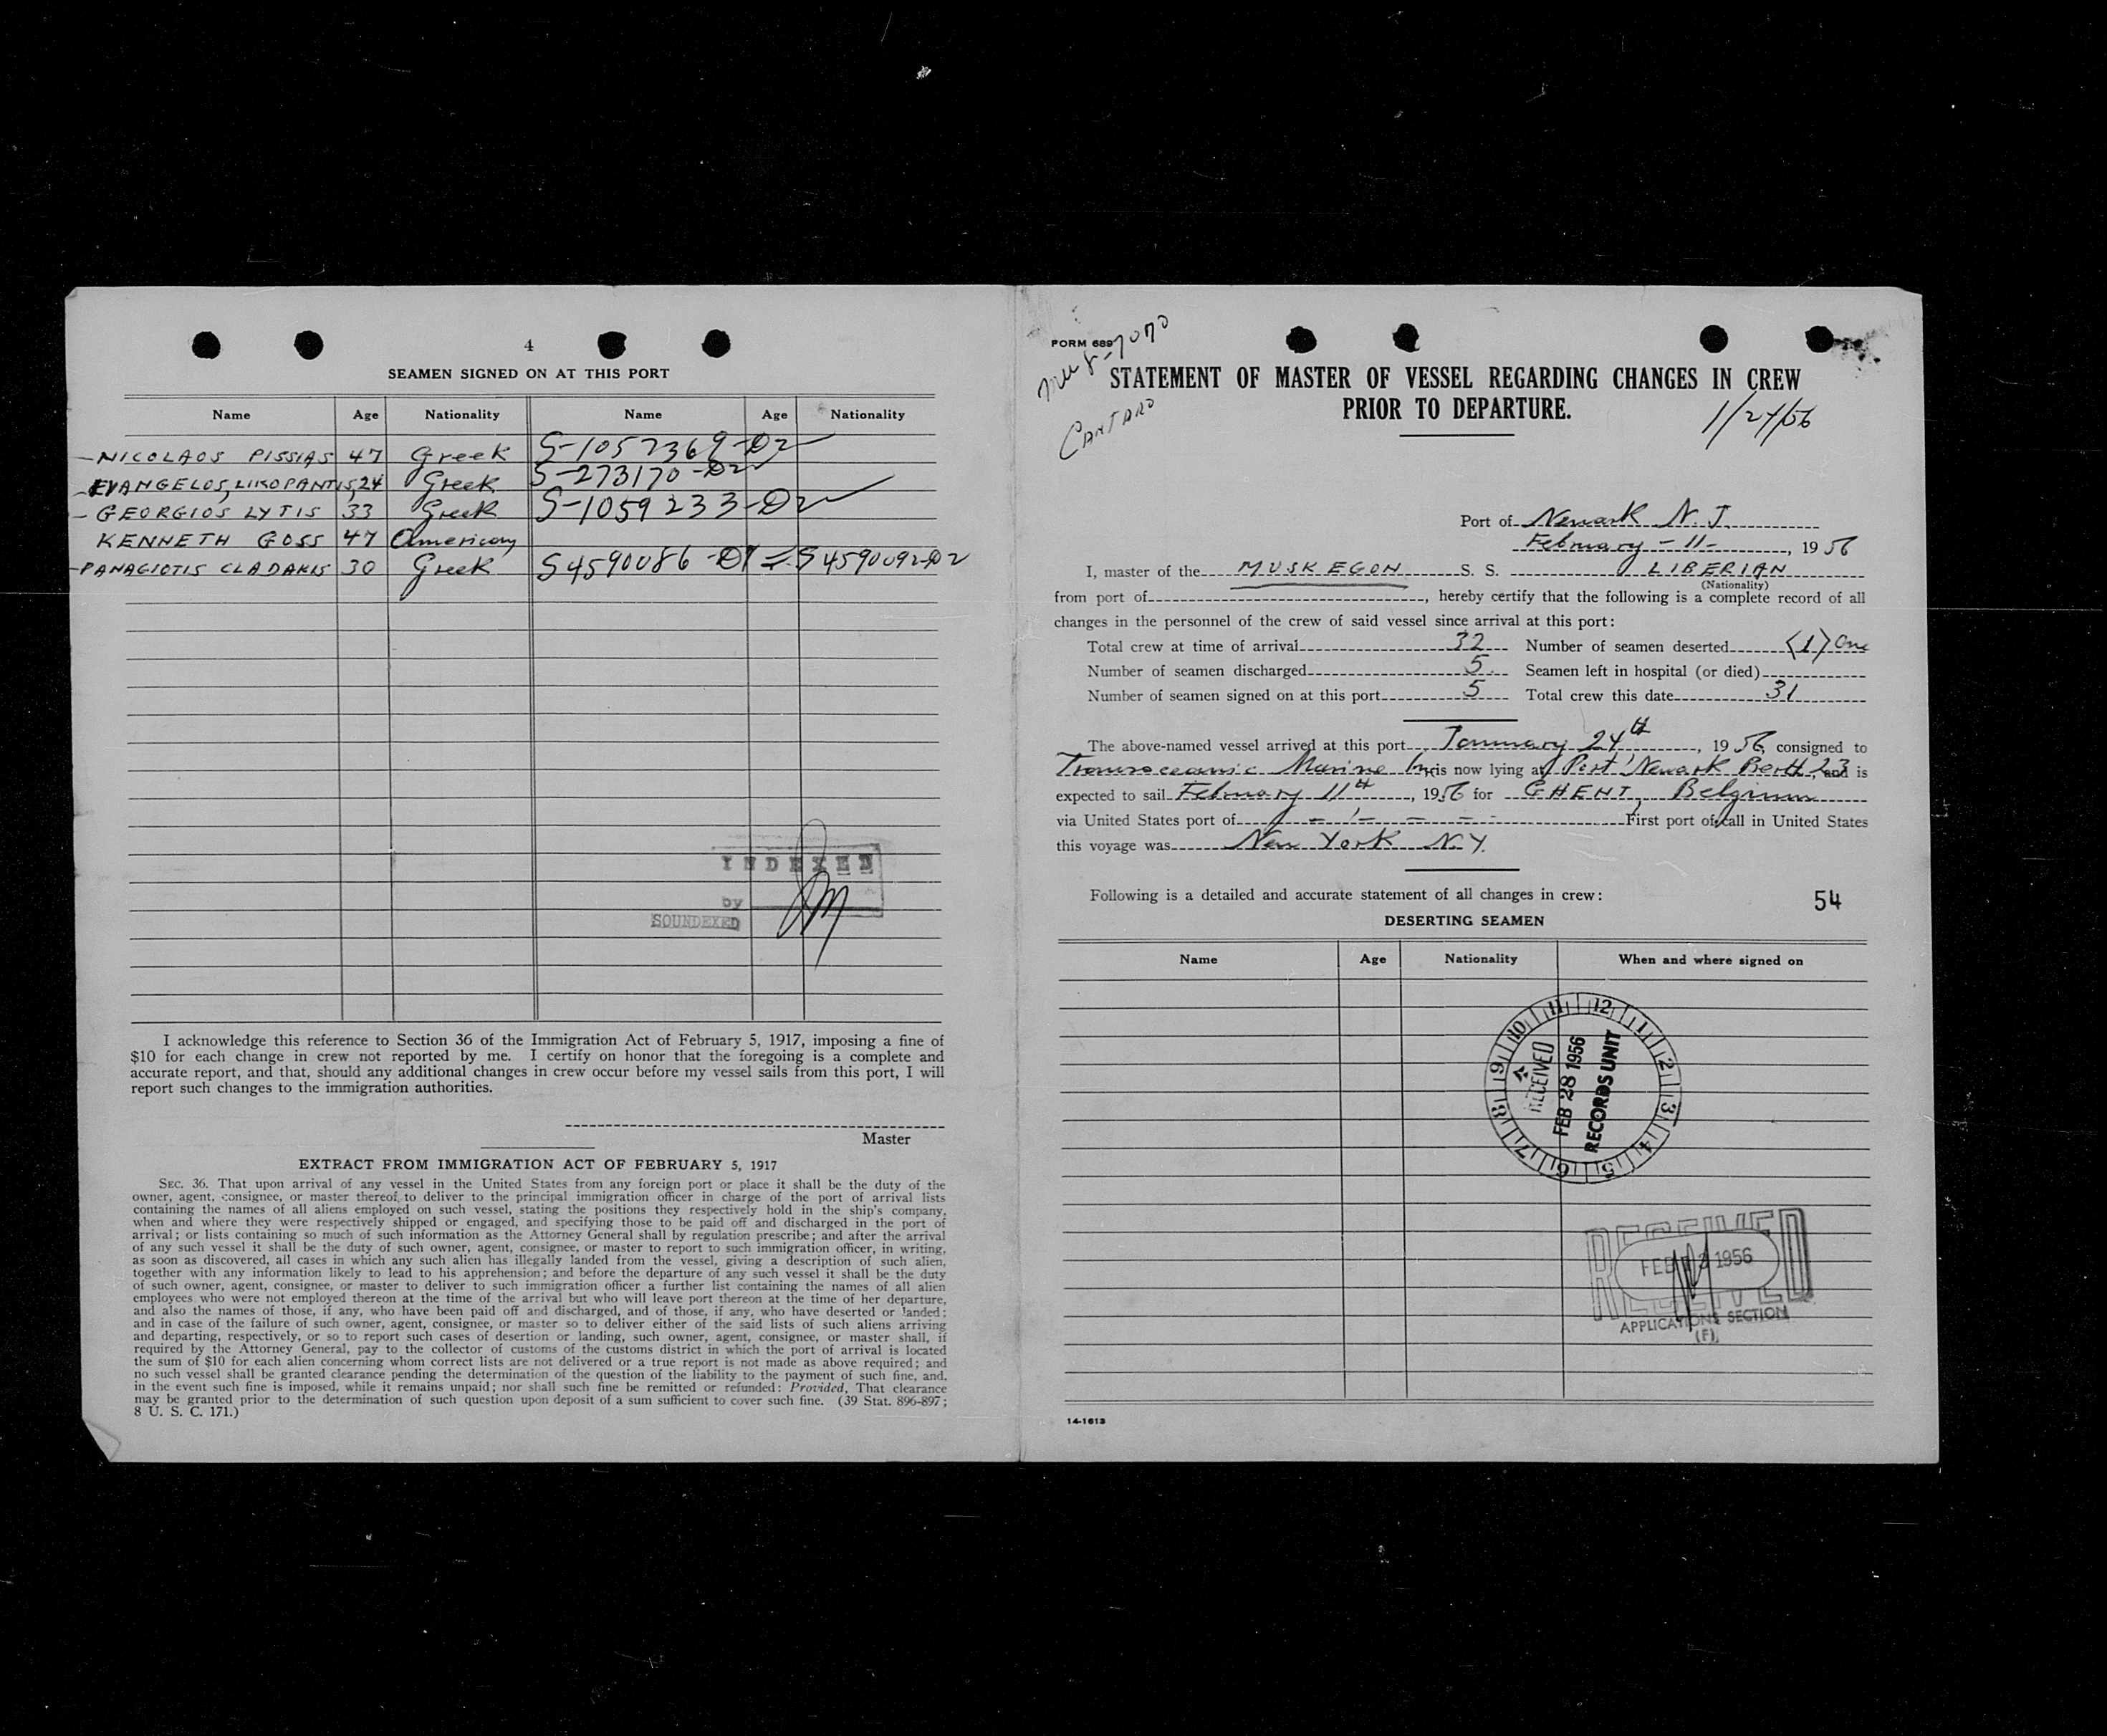 4
SEAMEN SIGNED ON AT THIS PORT
Name Age Nationality Name Age Nationality
- NICOLAOS PISSIAS 47 Greek S-1057369-D2
- EVANGELOS, LIKOPANTIS, 24 Greek S-273170-D2
- GEORGIOS LYTIS 33 Greek S-1059233-D2
KENNETH GOSS 47 American
- PANAGIOTIS CLADAKIS 30 Greek S4590086-D1 = S4590092-D2
INDEXED
by
SOUNDEXED
I acknowledge this reference to Section 36 of the Immigration Act of February 5, 1917, imposing a fine of
$10 for each change in crew not reported by me. I certify on honor that the foregoing is a complete and
accurate report, and that, should any additional changes in crew occur before my vessel sails from this port, I will
report such changes to the immigration authorities.
Master
EXTRACT FROM IMMIGRATION ACT OF FEBRUARY 5, 1917
SEC. 36. That upon arrival of any vessel in the United States from any foreign port or place it shall be the duty of the
owner, agent, consignee, or master thereof, to deliver to the principal immigration officer in charge of the port of arrival lists
containing the names of all aliens employed on such vessel, stating the positions they respectively hold in the ship's company,
when and where they were respectively shipped or engaged, and specifying those to be paid off and discharged in the port of
arrival; or lists containing so much of such information as the Attorney General shall by regulation prescribe; and after the arrival
of any such vessel it shall be the duty of such owner, agent, consignee, or master to report to such immigration officer, in writing,
as soon as discovered, all cases in which any such alien has illegally landed from the vessel, giving a description of such alien,
together with any information likely to lead to his apprehension; and before the departure of any such vessel it shall be the duty
of such owner, agent, consignee, or master to deliver to such immigration officer a further list containing the names of all alien
employees who were not employed thereon at the time of the arrival but who will leave port thereon at the time of her departure,
and also the names of those, if any, who have been paid off and discharged, and of those, if any, who have deserted or landed;
and in case of the failure of such owner, agent, consignee, or master so to deliver either of the said lists of such aliens arriving
and departing, respectively, or so to report such cases of desertion or landing, such owner, agent, consignee, or master shall, if
required by the Attorney General, pay to the collector of customs of the customs district in which the port of arrival is located
the sum of $10 for each alien concerning whom correct lists are not delivered or a true report is not made as above required; and
no such vessel shall be granted clearance pending the determination of the question of the liability to the payment of such fine, and,
in the event such fine is imposed, while it remains unpaid; nor shall such fine be remitted or refunded: Provided, That clearance
may be granted prior to the determination of such question upon deposit of a sum sufficient to cover such fine. (39 Stat. 896-897;
8 U. S. C. 171.)
FORM 689
STATEMENT OF MASTER OF VESSEL REGARDING CHANGES IN CREW
PRIOR TO DEPARTURE.
1/24/56
Port of Newark N. J.
February - 11 - , 1956
I, master of the MUSKEGON S. S. LIBERIAN
(Nationality)
from port of , hereby certify that the following is a complete record of all
changes in the personnel of the crew of said vessel since arrival at this port:
Total crew at time of arrival 32 Number of seamen deserted (1) One
Number of seamen discharged 5 Seamen left in hospital (or died)
Number of seamen signed on at this port 5 Total crew this date 31
The above-named vessel arrived at this port January 24th, 1956, consigned to
Transoceanic Marine Inc is now lying at Port Newark Berth 23, and is
expected to sail February 11th, 1956 for GHENT, Belgium
via United States port of - - - - First port of call in United States
this voyage was New York N.Y.
Following is a detailed and accurate statement of all changes in crew: 54
DESERTING SEAMEN
Name Age Nationality When and where signed on
12 1 2 3 4 5 6 7 8 9 10 11
RECEIVED
FEB 28 1956
RECORDS UNIT
RECEIVED
FEB 13 1956
APPLICATIONS SECTION
(F)
14-1613